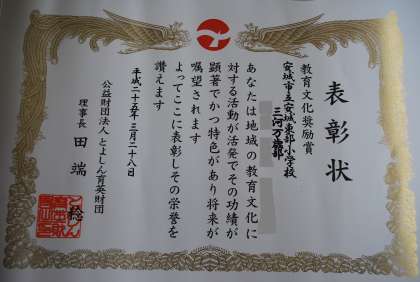 表彰状
教育文化奨励賞
安城市立安城東部小学校
三河万歳部
あなたは地域の教育文化に
対する活動が活発でその功績が
顕著でかつ特色があり将来が
嘱望されます
よってここに表彰しその栄誉を
讃えます
平成二十五年三月二十八日
公益財団法人とよしん育英財団
理事長 田端 稔